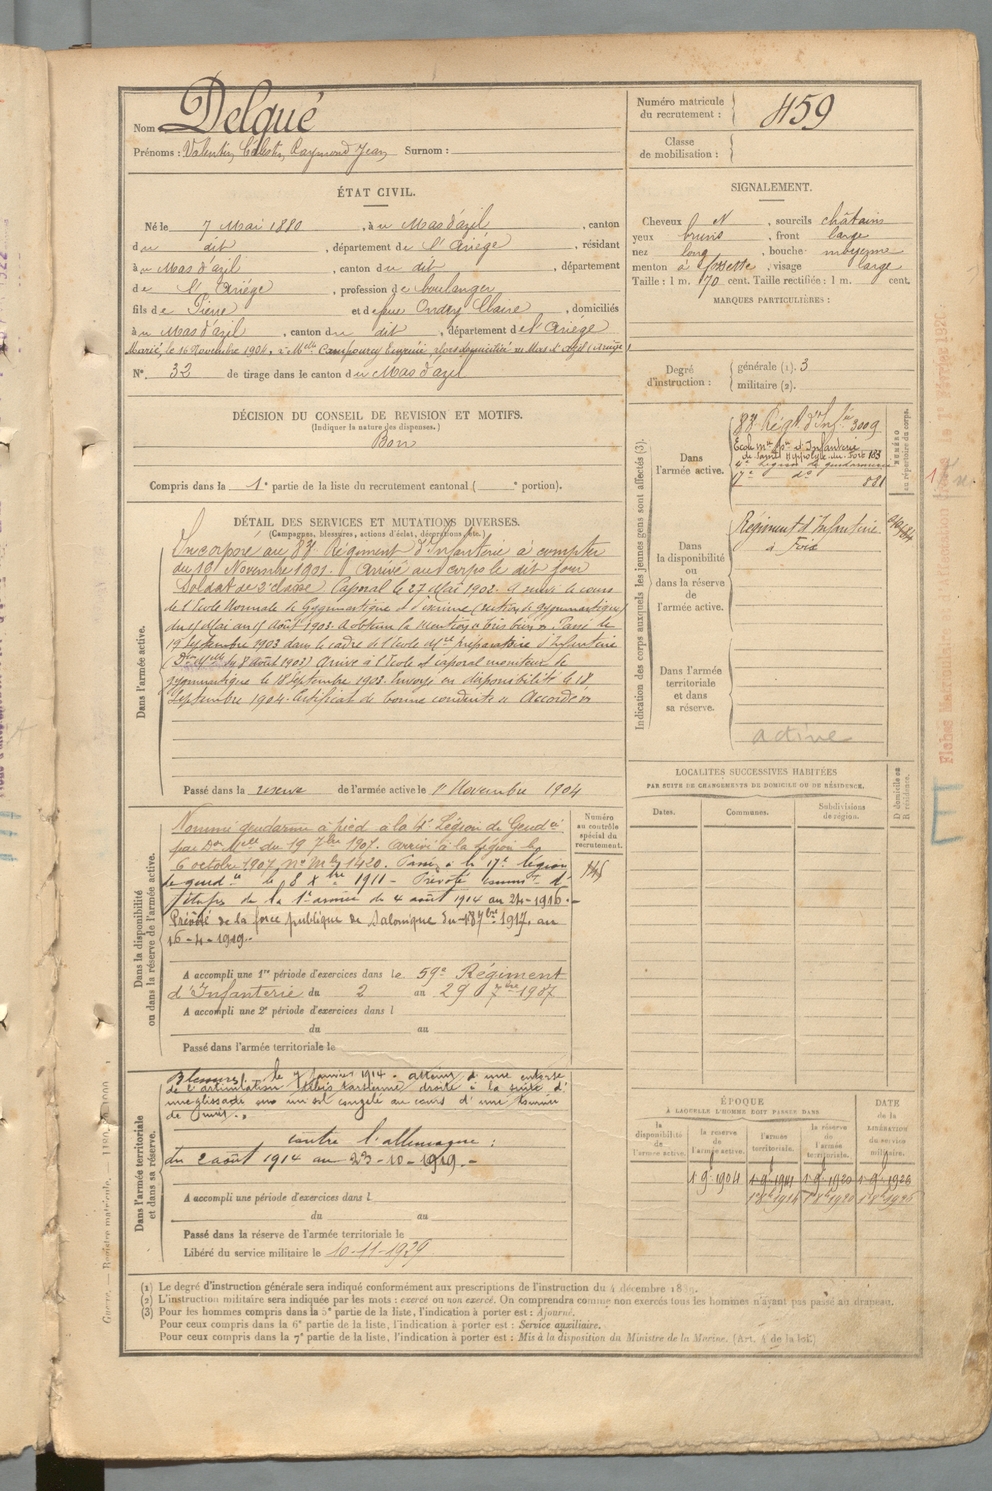 Nom Delqué
Prénoms : Valentin, Célestin, Raymond Jean Surnom :
Numéro matricule du recrutement : 459
Classe de mobilisation :
ÉTAT CIVIL.
Né le 7 Mai 1880, à u Mas d'azil, canton
d u dit, département de l'Ariège, résidant
à u Mas d'azil, canton d u dit, département
de l'Ariége, profession de boulanger,
fils de Pierre et de Claire, domiciliés
à u Mas d'azil, canton d u dit, département de l'Ariège
Marié, le 16 Novembre 1904, à Melle Campourcy Eugénie, domiciliée au Mas d'Azil (Ariège)
N° 32 de tirage dans le canton d u Mas d'azil
SIGNALEMENT.
Cheveux N, sourcils châtains
yeux bruns, front large
nez long, bouche moyenne
menton à fossette, visage large
Taille : 1 m. 70 cent. Taille rectifiée : 1 m. cent.
MARQUES PARTICULIÈRES :
Degré d'instruction : générale (1). 3
militaire (2).
DÉCISION DU CONSEIL DE REVISION ET MOTIFS.
(Indiquer la nature des dispenses.)
Bon
Compris dans la 1e partie de la liste du recrutement cantonal ( e portion).
DÉTAIL DES SERVICES ET MUTATIONS DIVERSES.
(Campagnes, blessures, actions d'éclat, décorations, etc.)
Dans l'armée active.
Incorporé au 83e Régiment d'Infanterie à compter
du 19 Novembre 1901. Arrivé au corps le dit jour
Soldat de 2e classe Caporal le 27 Mai 1902. A suivi le cours
de l'Ecole Normale de Gymnastique et d'escrime (section de gymnastique)
du 15 Mai au 15 Août 1903. A obtenu la mention "très bien". Passé le
19 septembre 1903 dans le cadre de l'école Mre préparatoire d'Infanterie
du 8 août 1903) Arrivé à l'Ecole et caporal moniteur de
gymnastique le 18 Septembre 1903. Envoyé en disponibilité le 18
Septembre 1904. Certificat de bonne conduite "Accordé"
Passé dans la reserve de l'armée active le 1er Novembre 1904
Dans la disponibilité ou dans la réserve de l'armée active.
Nommé gendarme à pied à la 4e Légion de Gendie
par Don Mlle du 19 7bre 1907. Arrivé à la légion le
6 octobre 1907. No Mle 1420. Passé à la 17e légion
de gendie le 8 Xbre 1911 - Prévôté
d'étapes de la 1e armée du 4 août 1914 au 24-1916.
Prévôté de la force publique de Salonique du 18 7bre 1917, au
16-4-1919.
Numéro au contrôle spécial du recrutement.
A accompli une 1re période d'exercices dans le 59e Régiment
d'Infanterie du 2 au 29 7bre 1907
A accompli une 2e période d'exercices dans l
du au
Passé dans l'armée territoriale le
Dans l'armée territoriale et dans sa réserve.
Blessures. le 7 Janvier 1914 - atteint d'une entorse
de l'articulation tibio tarsienne droite à la suite d'
une glissade sur un sol congelé au cours d'une tournée
de nuit.
contre l'allemagne :
du 2 août 1914 au 23-10-1919.
A accompli une période d'exercices dans l
du au
Passé dans la réserve de l'armée territoriale le
Libéré du service militaire le 10-11-1929
Indication des corps auxquels les jeunes gens sont affectés (3).
NUMÉRO au répertoire du corps.
Dans l'armée active.
83e Régt d'Infie 3009
Ecole Mre Pre d'Infanterie
de Saint Hippolyte-du-Fort 163
4e Légion de gendarmerie
17e do 881
Dans la disponibilité ou dans la réserve de l'armée active.
Régiment d'Infanterie
à Foix
Dans l'armée territoriale et dans sa réserve.
active
LOCALITÉS SUCCESSIVES HABITÉES
PAR SUITE DE CHANGEMENTS DE DOMICILE OU DE RÉSIDENCE.
Dates. Communes. Subdivisions de région.
D domicile ou R résidence.
ÉPOQUE
À LAQUELLE L'HOMME DOIT PASSER DANS
DATE de la LIBÉRATION du service militaire.
la disponibilité de l'armée active. la réserve de l'armée active. l'armée territoriale. la réserve de l'armée territoriale.
(1) Le degré d'instruction générale sera indiqué conformément aux prescriptions de l'instruction du 4 décembre 1889.
(2) L'instruction militaire sera indiquée par les mots : exercé ou non exercé. On comprendra comme non exercés tous les hommes n'ayant pas passé au drapeau.
(3) Pour les hommes compris dans la 5e partie de la liste, l'indication à porter est : Ajourné.
Pour ceux compris dans la 6e partie de la liste, l'indication à porter est : Service auxiliaire.
Pour ceux compris dans la 7e partie de la liste, l'indication à porter est : Mis à la disposition du Ministre de la Marine. (Art. 4 de la loi.)